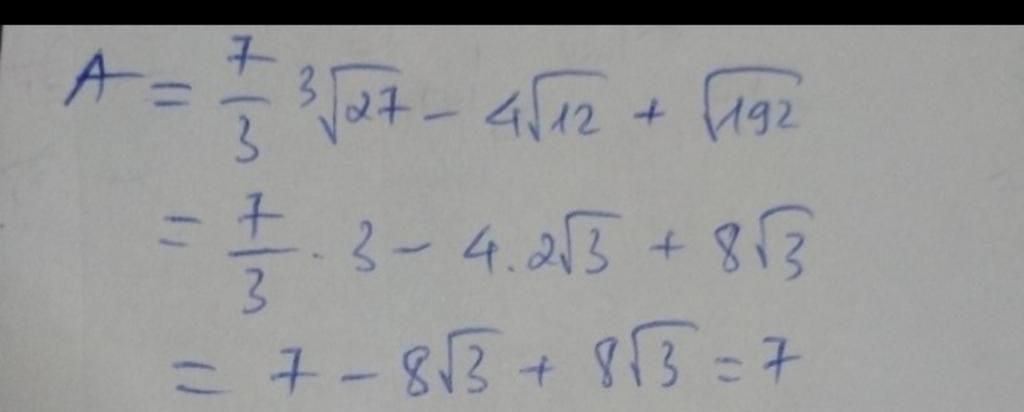 A = 7/3 ³√27 - 4√12 + √192
= 7/3 . 3 - 4.2√3 + 8√3
= 7 - 8√3 + 8√3 = 7